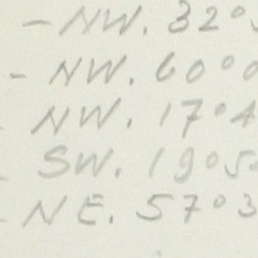 - NW. 32°
- NW. 60°0
- NW. 17°4
- SW. 19°5
- NE. 57°3